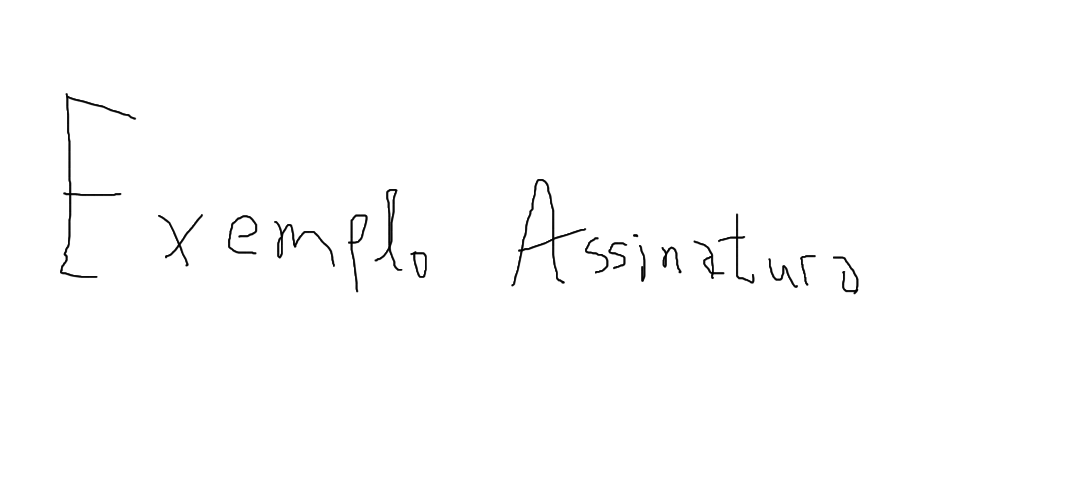 Exemplo Assinatura